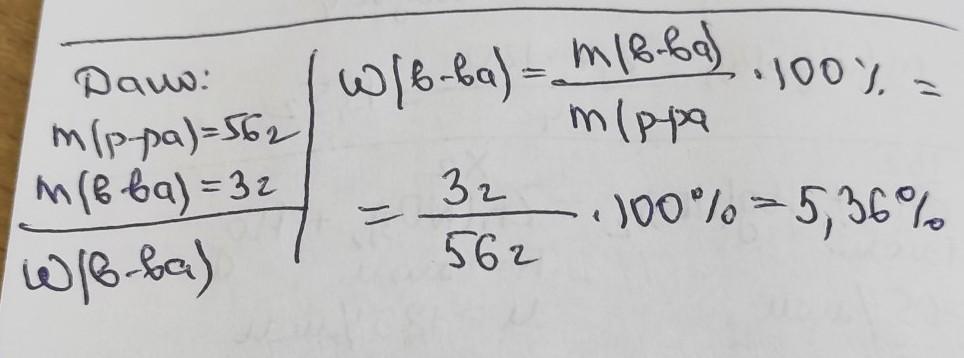 Дано:
m(р-ра)=56г
m(в-ва)=3г
W(в-ва)
W(в-ва)=m(в-ва)/m(р-ра ·100% =
= 3г/56г ·100%=5,36%